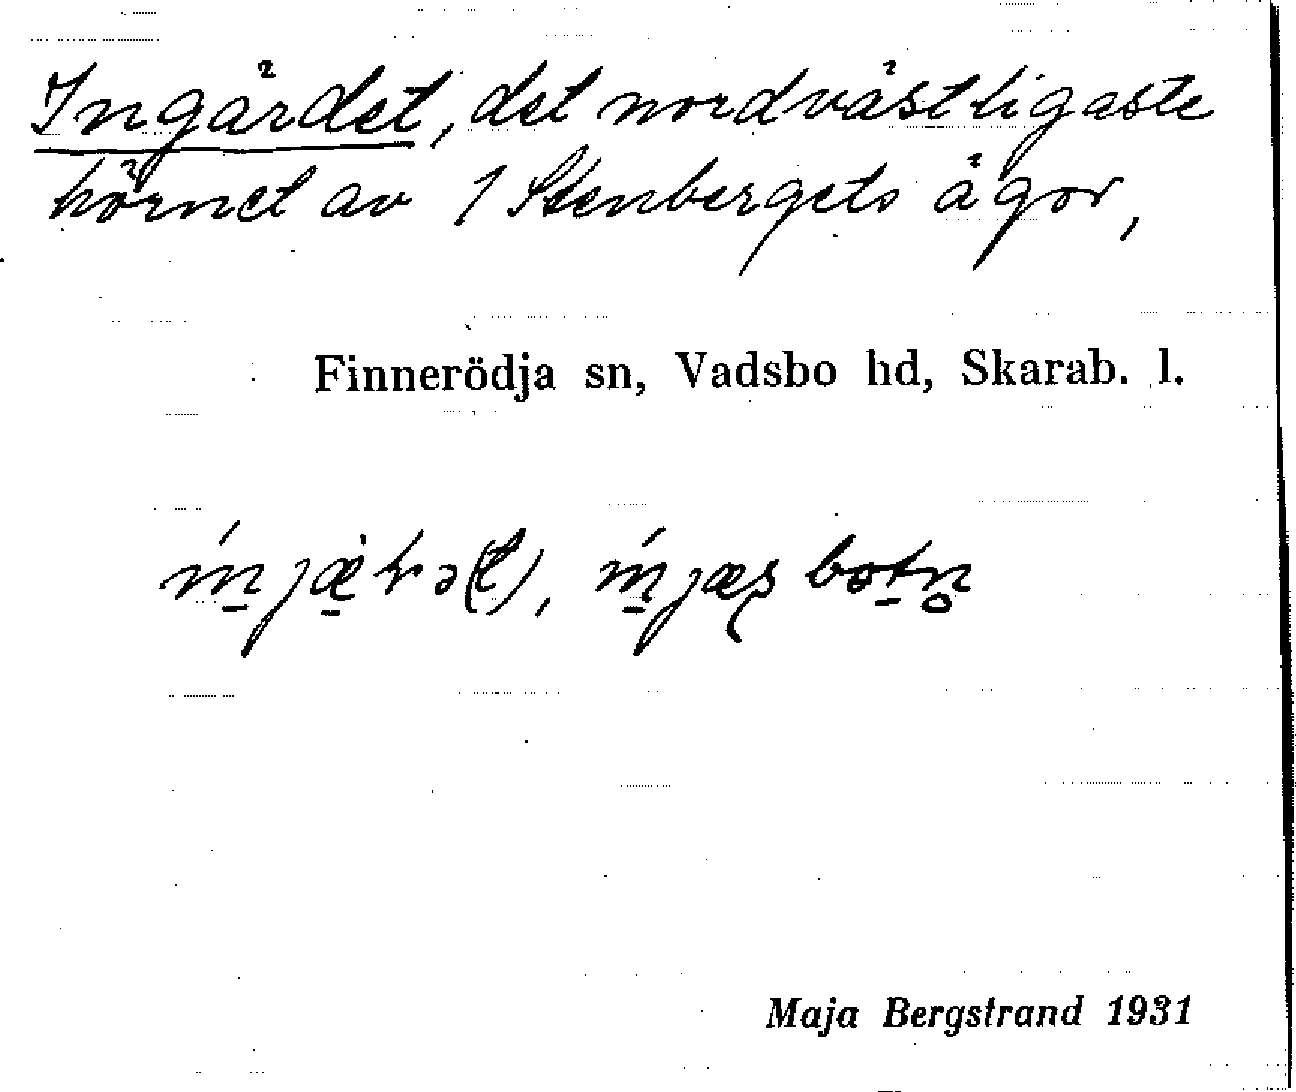 Ingärdet, det nordvästligaste
hörnet av 1 Stenbergets ägor,
Finnerödja sn, Vadsbo hd, Skarab. l.
Maja Bergstrand 1931